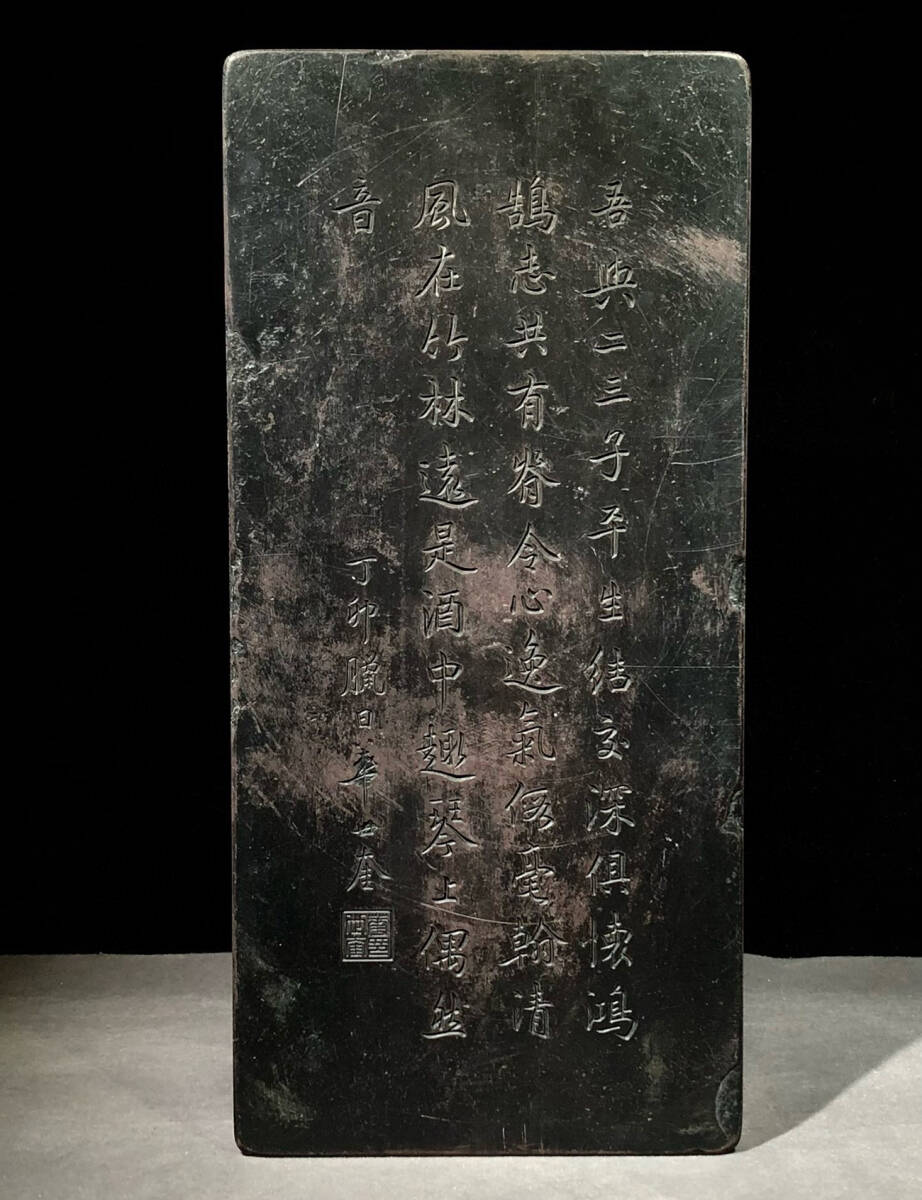 吾與二三子平生結交深俱懷鴻
鵠志共有脊令心逸氣假毫翰清
風在竹林達是酒中趣琴上偶然
音
丁卯臘日華世奎